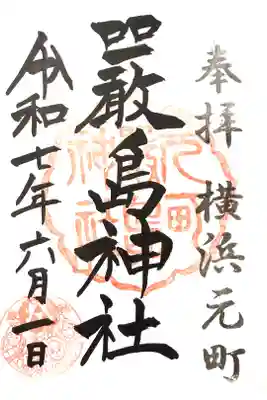 奉拝 横浜元町
嚴島神社
令和七年六月一日